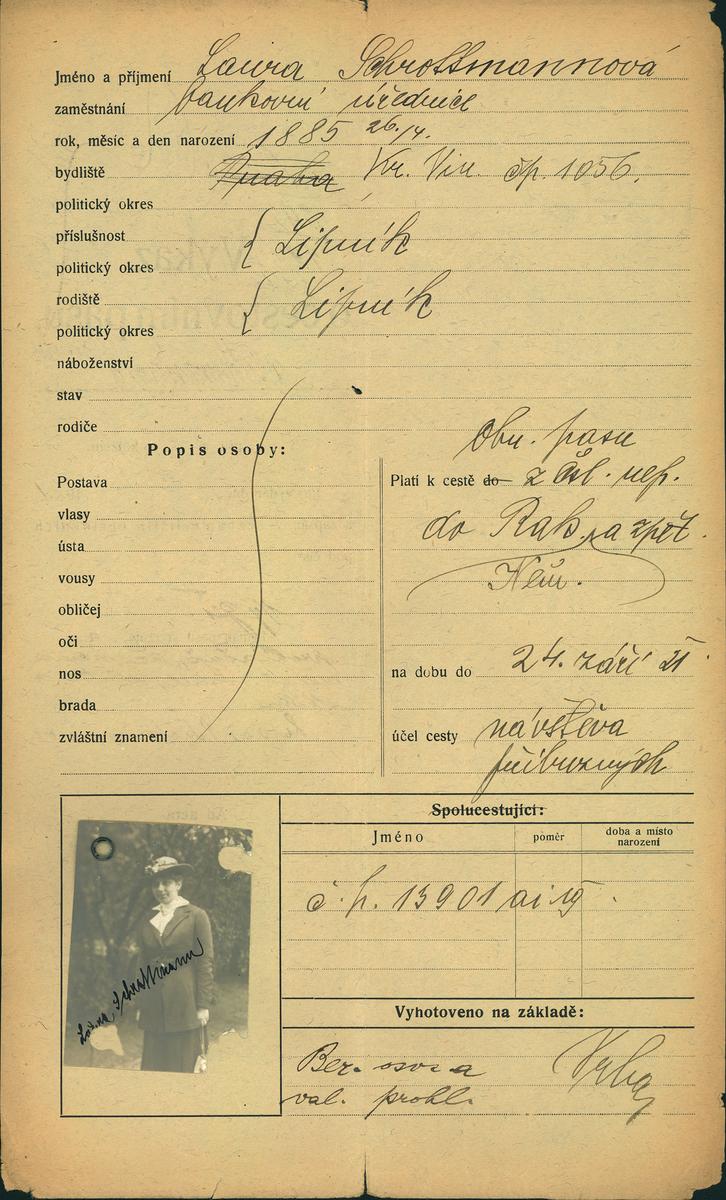 Jméno a příjmení Laura Schrottmannová
zaměstnání bankovní úřednice
rok, měsíc a den narození 1885 26./4.
bydliště Praha Kr. Vin. čp. 1056.
politický okres
příslušnost
politický okres { Lipník
rodiště
politický okres { Lipník
náboženství
stav
rodiče
Popis osoby:
Postava
vlasy
ústa
vousy
obličej
oči
nos
brada
zvláštní znamení
Obn. pasu
Platí k cestě do z čsl. rep.
do Rak. a zpět.
Něm.
na dobu do 24. září 21
účel cesty návštěva
příbuzných
Spolucestující:
Jméno poměr doba a místo
narození
č. p. 13901 ai 19
Laura Schrottmann
Vyhotoveno na základě:
Ber. osv. a
val. prohl.
Vrba